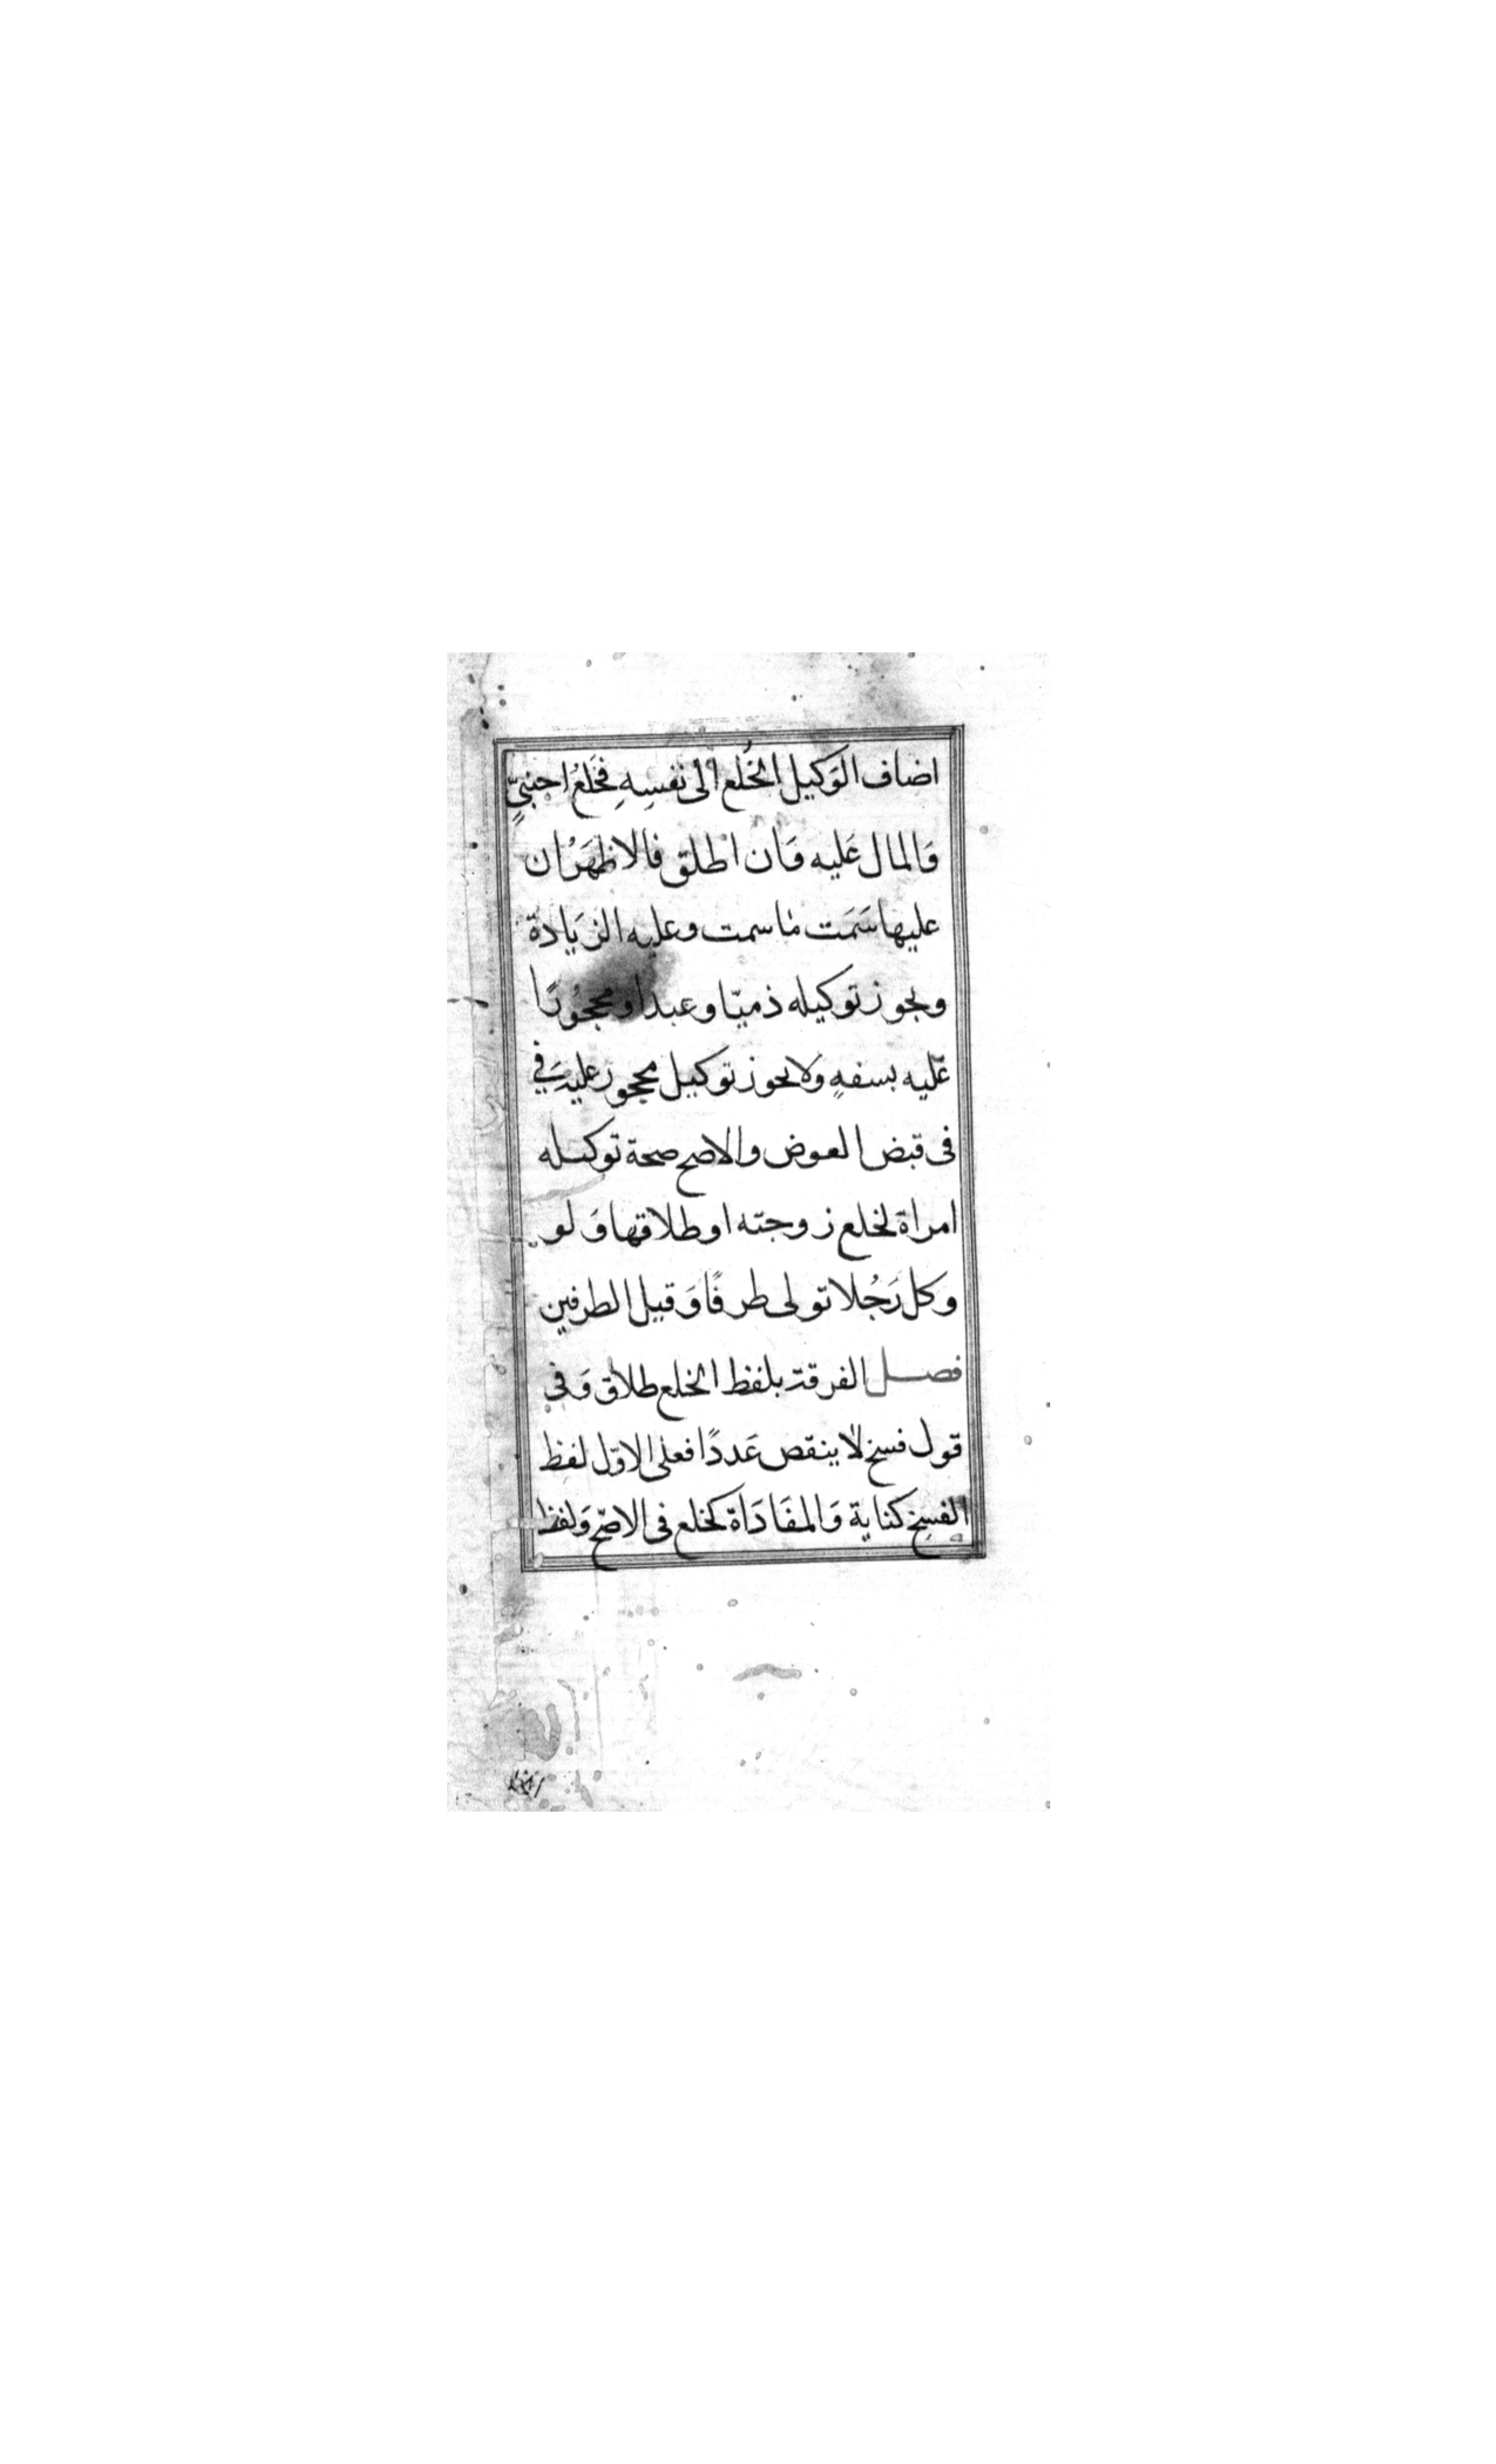 اضاف الوَكيل الخُلع الى نفسِهِ فخَلعُ اجنبيٍّ
وَالمال عَليه وَان اطلق فالاظهَرُ ان
عليها سَمَت ما سمت وعليه الزيَادة
ويجوز توكيله ذميّا وعبدا ومحجُورًا
عَليه بسفهٍ ولا يجوز توكيل محجور عليهِ في
فى قبض العوض والاصح صحة توكيله
امراة لخلع زوجته او طلاقها وَلو
وكل رَجُلا تولى طرفًا وَقيل الطرفين
فصل الفرقة بلفظ الخلع طلاق وَفي
قول فسخ لا ينقص عَددًا فعلى الاوّل لفظ
الفسخ كناية وَالمفَادَاة كخلع فى الاصّح وَلفظ